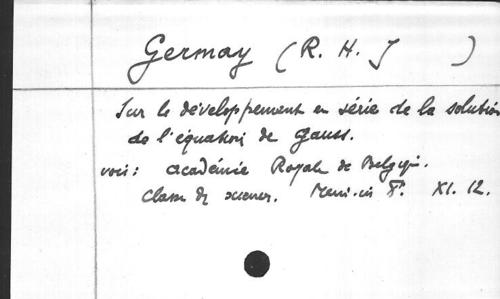 Germay (R. H. J )
Sur le développement en série de la solution
de l'équation de Gauss.
voir: Académie Royale de Belgiq.
Classe des sciences. Mém. in 8º. XI. 12.